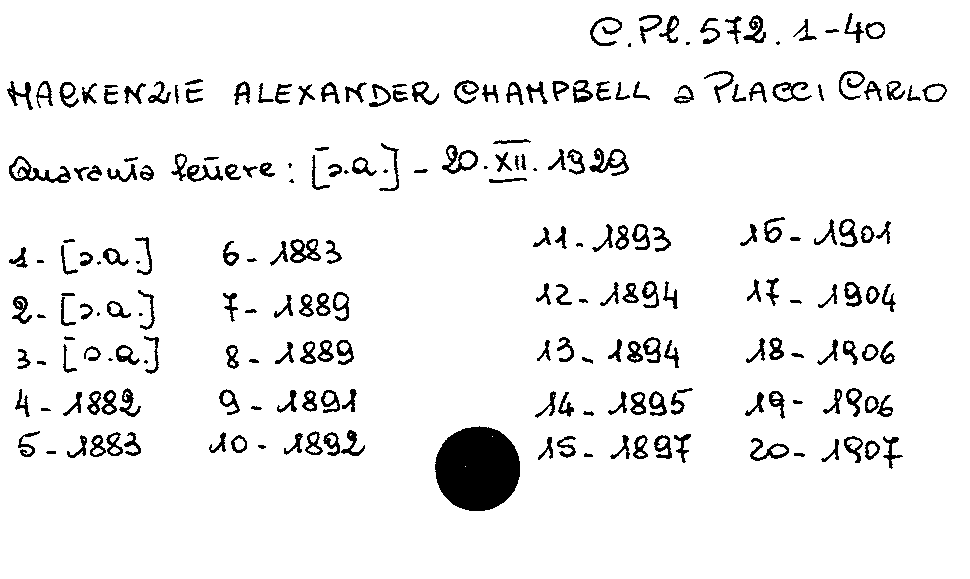 C.Pl. 572. 1-40
MACKENZIE ALEXANDER CHAMPBELL a PLACCI CARLO
Quaranta lettere: [s.a.] - 20.XII.1929
1 - [s.a.]
2 - [s.a.]
3 - [s.a.]
4 - 1882
5 - 1883
6 - 1883
7 - 1889
8 - 1889
9 - 1891
10 - 1892
11 - 1893
12 - 1894
13 - 1894
14 - 1895
15 - 1897
16 - 1901
17 - 1904
18 - 1906
19 - 1906
20 - 1907